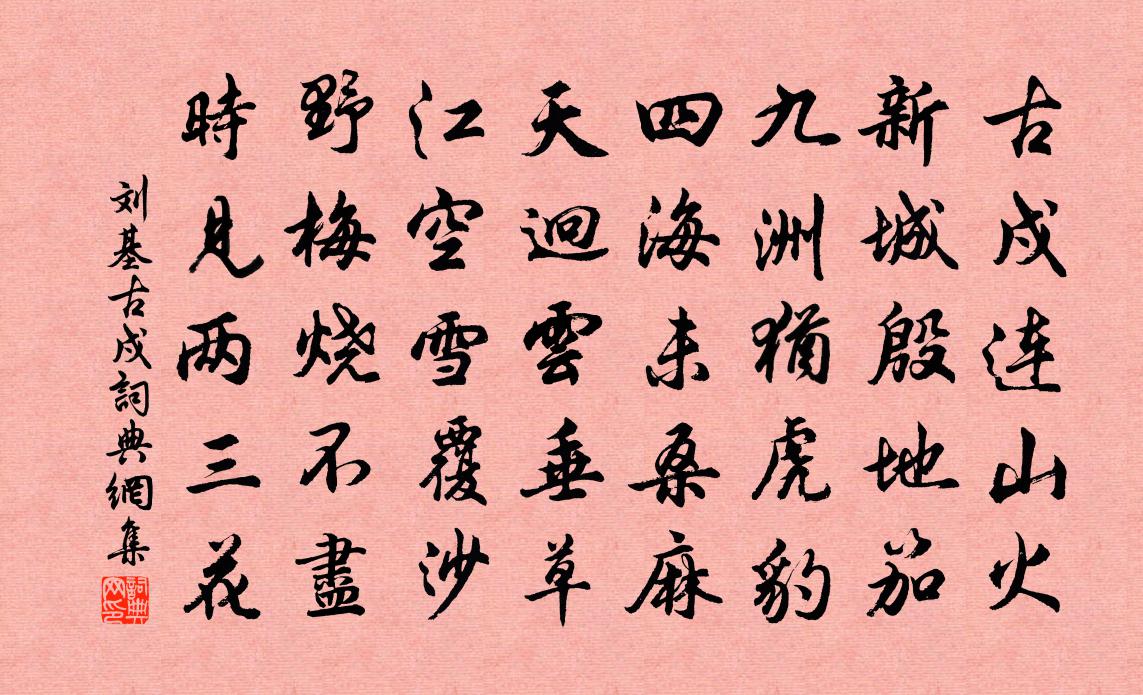 古戍连山火
新城殷地笳
九洲猶虎豹
四海未桑麻
天迥雲垂草
江空雪覆沙
野梅烧不盡
時見两三花
刘基古戍詞典網集
詞典网印